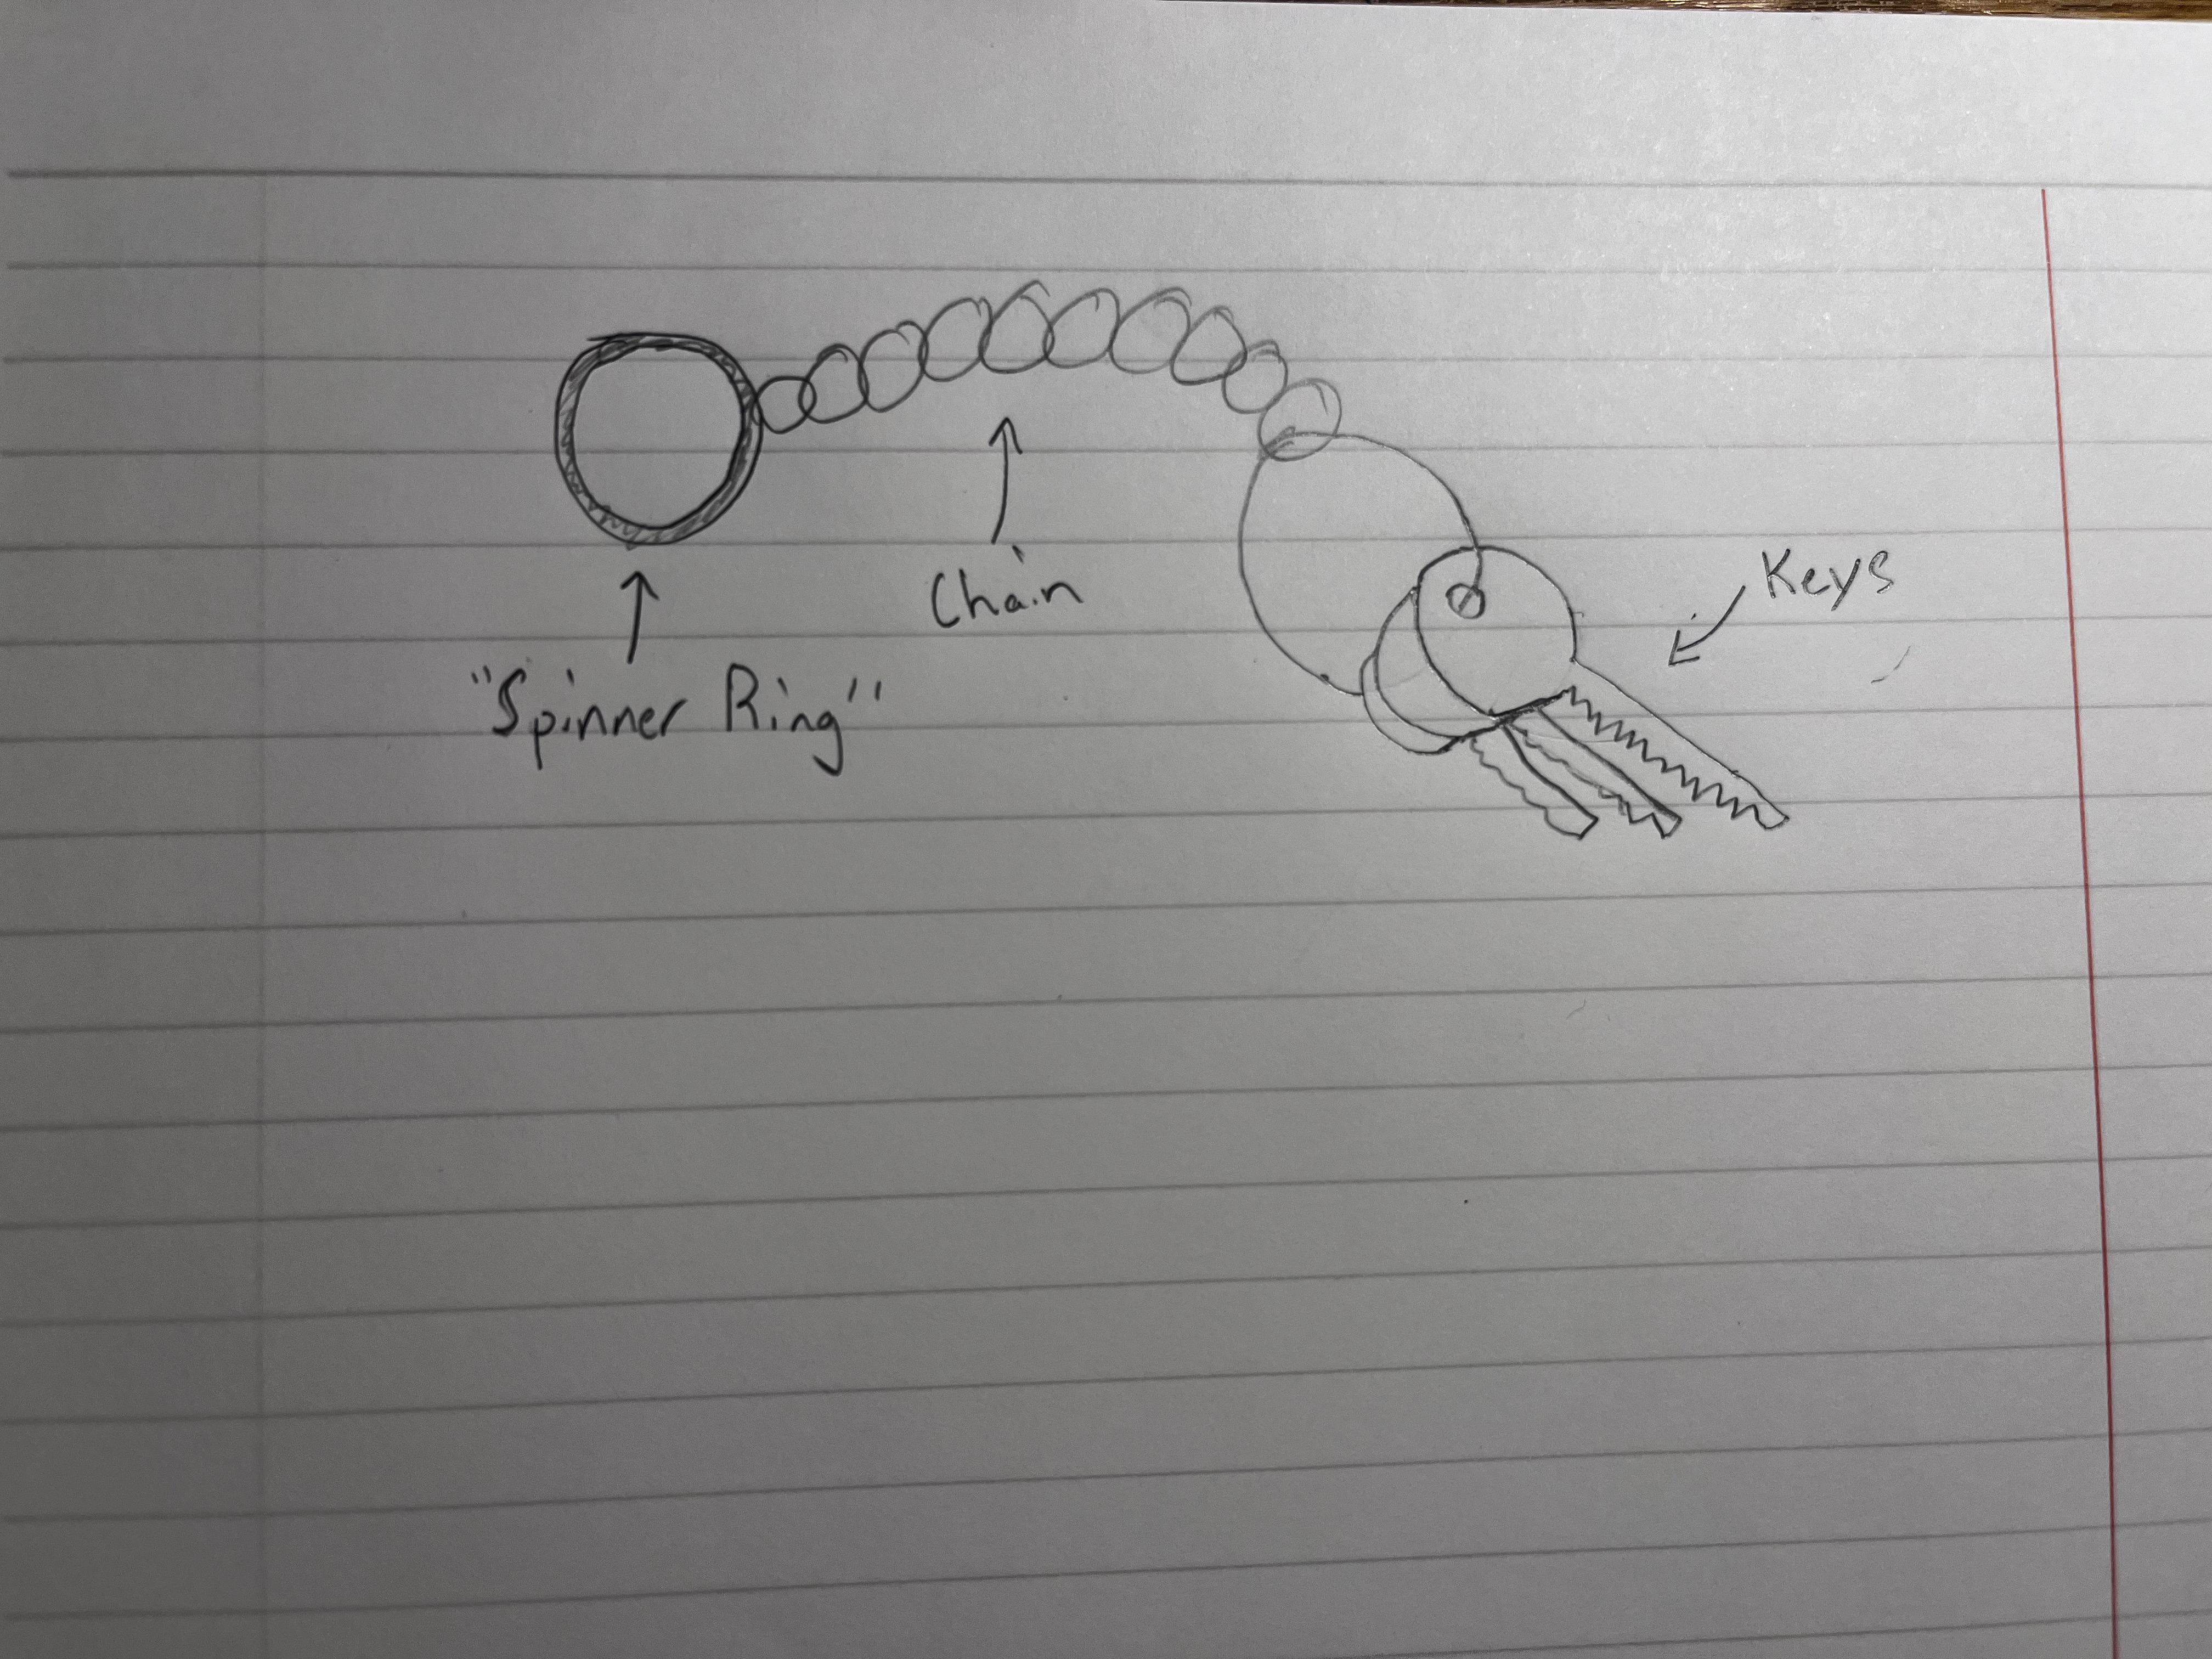 "Spinner Ring"
Chain
Keys